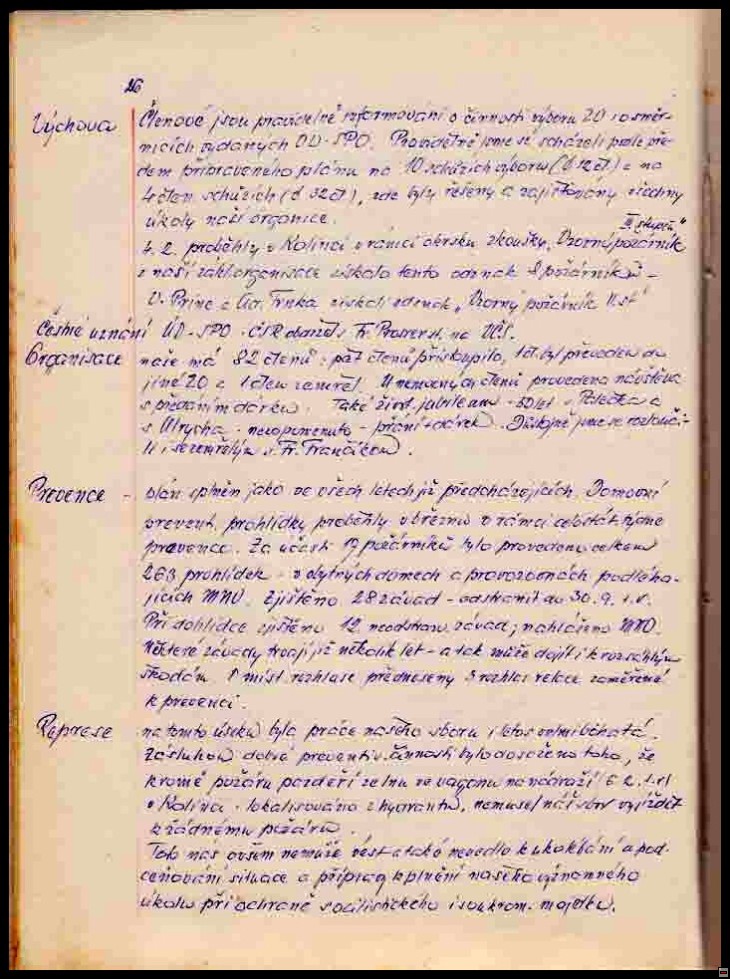 26
Výchova Členové jsou pravidelně informováni o činnosti výboru ZO i o směr-
nicích vydaných ÚV-SPO. Pravidelně jsme se scházeli podle pře-
dem připraveného plánu na 10 schůzích výboru (á 12 čl) a na
4 člen. schůzích (á 32 čl), zde byly řešeny a zajišťovány všechny
úkoly naší organice.
III. stupeň"
4. 2. proběhly v Kolinci v rámci okrsku zkoušky „Vzorný požárník
z naší zákl. organisace získalo tento odznak 8 požárníků -
V. Princ a Ad. Trnka získali odznak „Vzorný požárník II. st"
Čestné uznání ÚV-SPO-ČSR obdržel s. Fr. na VČS.
Organisace naše má 82 členů; pět členů přistoupilo, 1 čl. byl převeden do
jiné ZO a 1 člen zemřel. U nemocných členů provedena návštěva
s předáním dárku. Také život. jubileum - 50 let s. Polečka a
s. Ulrycha - nezapomenuto - přání + dárek. Důstojně jsme se rozlouči-
li i se zemřelým s. Fr. Frančíkem.
Prevence - plán splněn jako ve všech letech již předcházejících. Domovní
prevent. prohlídky proběhly v březnu v rámci celostát. týdne
prevence. Za účasti 19 požárníků bylo provedeno celkem
263 prohlídek - v obytných domech a provozovnách podléha-
jících MNV. Zjištěno 28 závad - odstranit do 30. 9. t. r.
Při dohlídce zjištěno 12 neodstran. závad; nahlášeno MNV.
Některé závady trvají již několik let - a tak může dojít i k rozsáhlým
škodám. V míst. rozhlase předneseny 3 rozhlas. relace zaměřené
k prevenci.
Represe na tomto úseku byla práce našeho sboru i letos velmi bohatá.
Zásluhou dobré preventiv. činnosti bylo dosaženo toho, že
kromě požáru pazdeří ze lnu ve vagonu na nádraží 6. 2. t. r.
v Kolinci - lokalisováno z hydrantu, nemusel náš sbor vyjíždět
k žádnému požáru.
Toto nás ovšem nemůže vést a také nevedlo k ukolébání a pod-
ceňování situace a příprav k plnění našeho významného
úkolu při ochraně socilistického i soukrom. majetku.